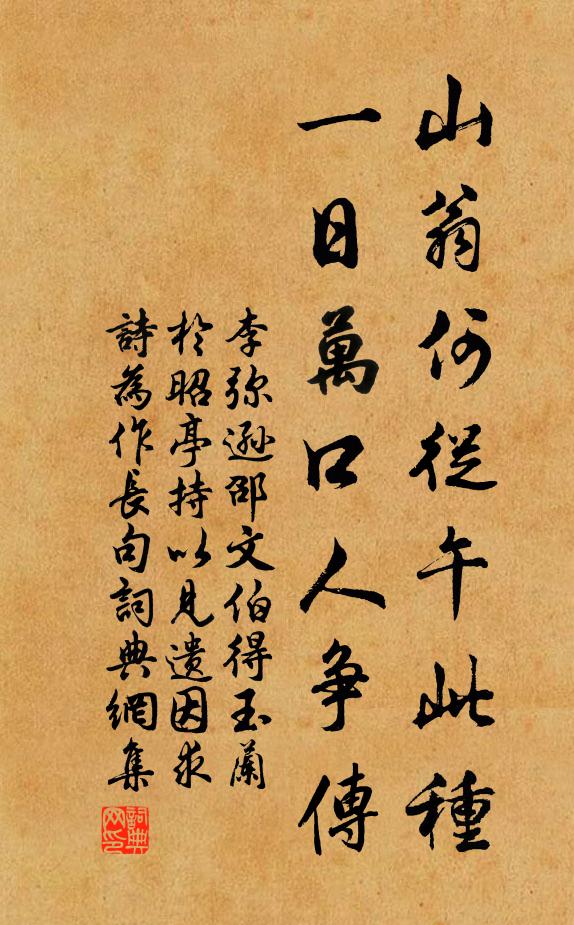 山翁何從午此種
一日萬口人爭傳
李弥遜邵文伯得玉蘭
於昭亭持以見遺因求
詩為作長句詞典網集
詞典
网印